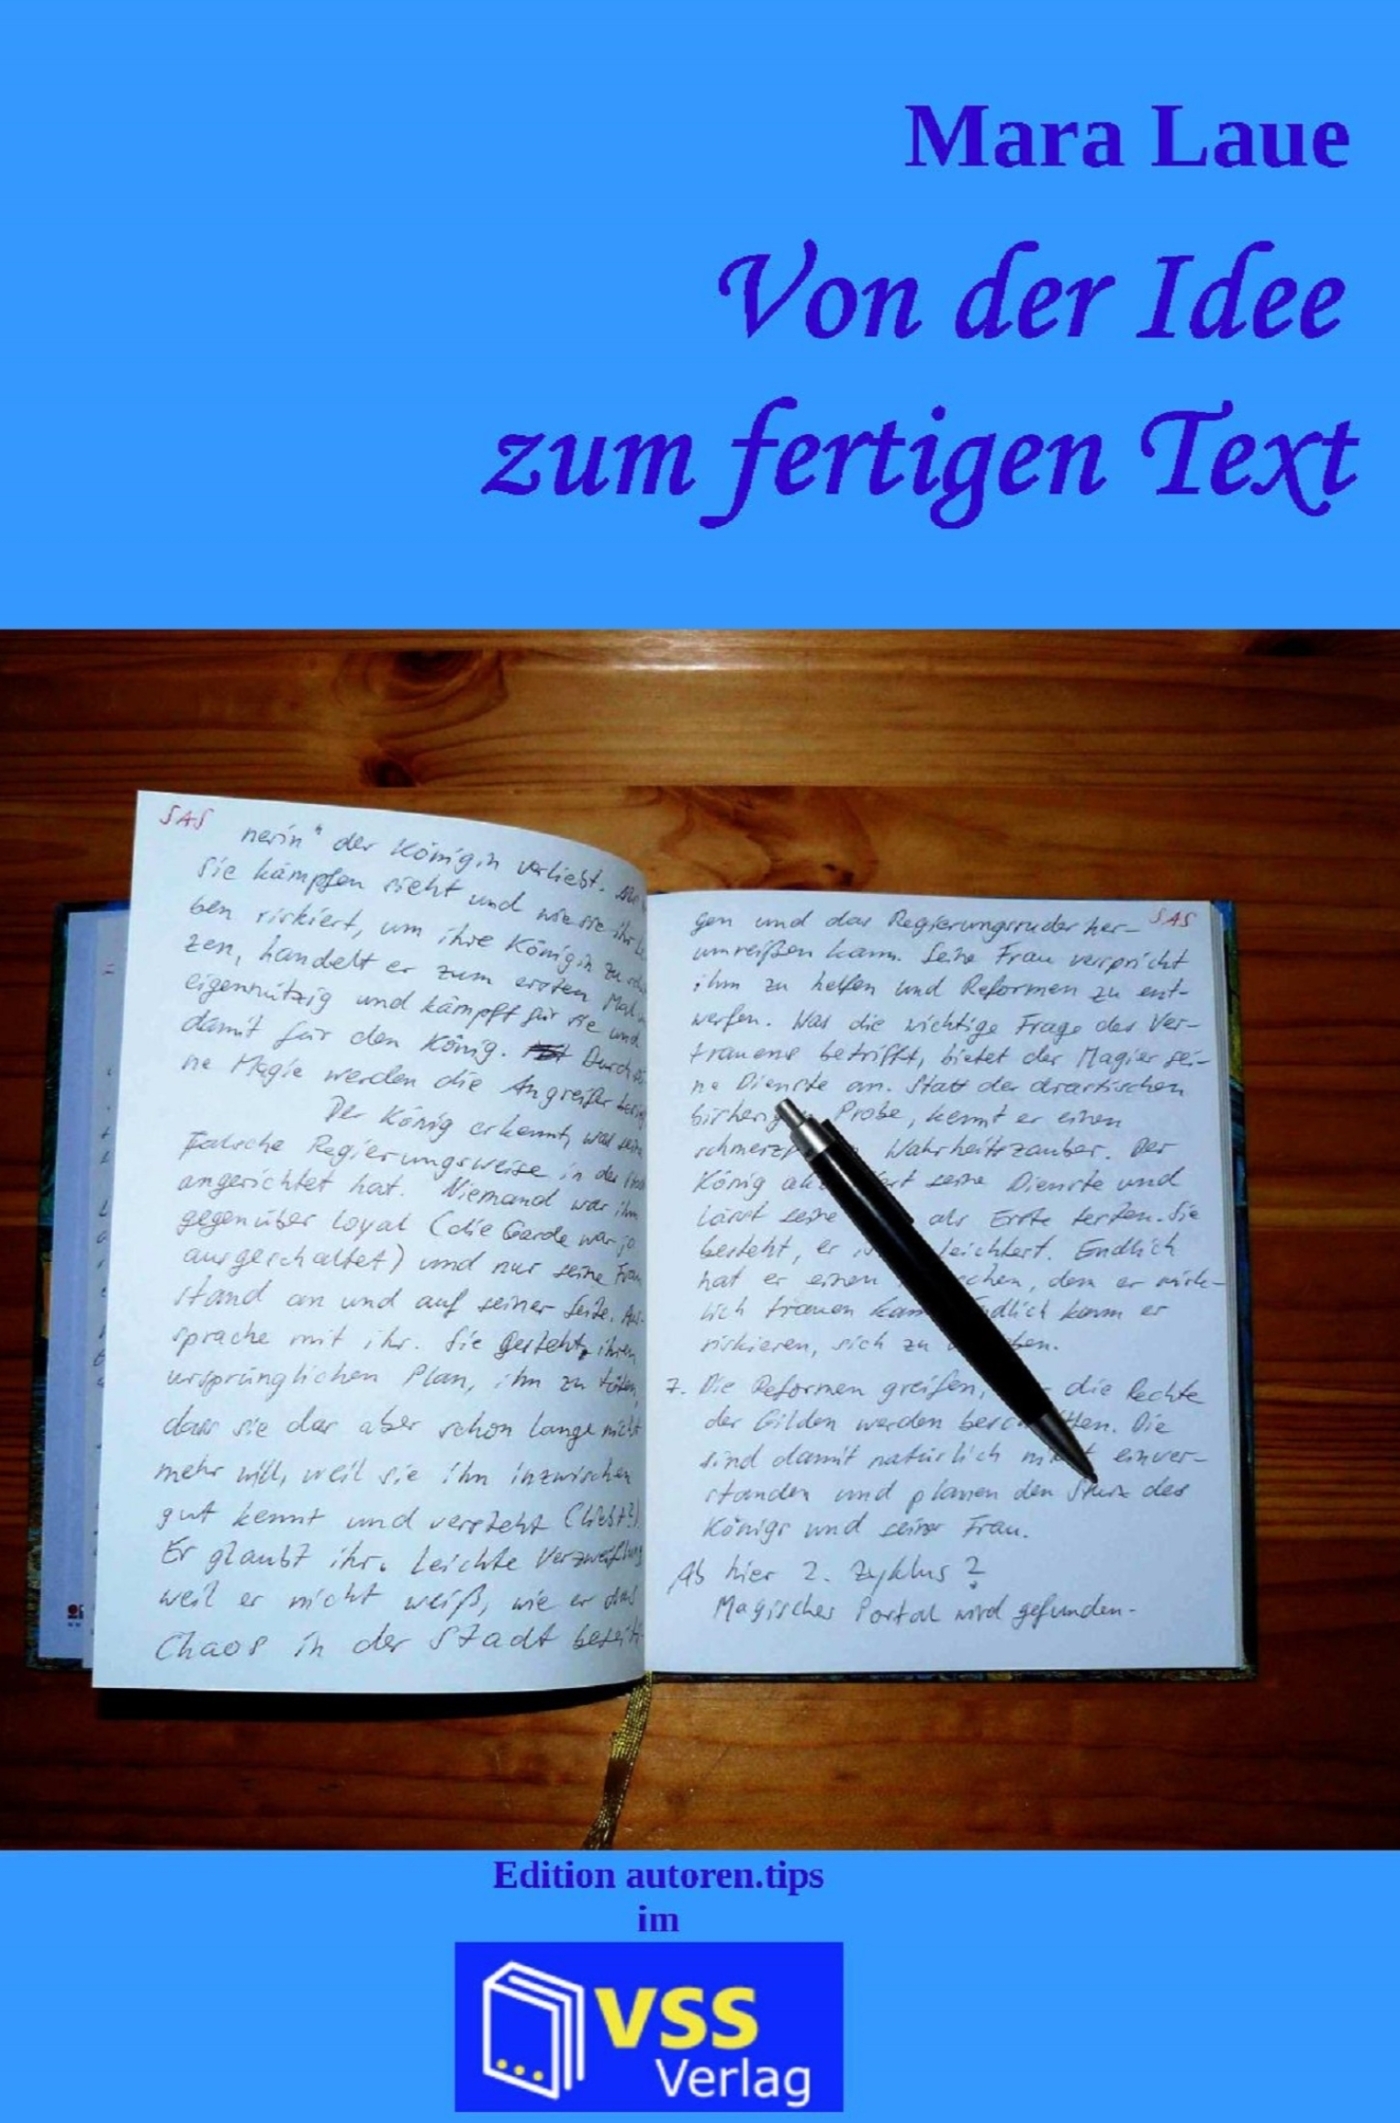 Mara Laue
Von der Idee
zum fertigen Text
SAS
nerin" der Königin verliebt.
sie kämpfen sieht und wie sie ihr
ben riskiert, um ihre Königin zu
zen, handelt er zum ersten Mal
eigennützig und kämpft für sie und
damit für den König. Durch
ne Magie werden die Angreifer
Der König erkennt, was seine
falsche Regierungsweise in der
angerichtet hat. Niemand war ihm
gegenüber loyal (die Garde war ja
ausgeschaltet) und nur seine Frau
stand an und auf seiner Seite. Aus-
sprache mit ihr. Sie gesteht ihren
ursprünglichen Plan, ihn zu töten,
dass sie das aber schon lange nicht
mehr will, weil sie ihn inzwischen
gut kennt und versteht (liebt?).
Er glaubt ihr. Leichte Verzweiflung
weil er nicht weiß, wie er das
Chaos in der Stadt beseiti
SAS
gen und das Regierungsruder her-
umreißen kann. Seine Frau verspricht
ihm zu helfen und Reformen zu ent-
werfen. Was die wichtige Frage des Ver-
trauens betrifft, bietet der Magier sei-
ne Dienste an. Statt der drastischen
Probe, kennt er einen
Wahrheitszauber. Der
König seine Dienste und
lässt seine als Erste testen. Sie
besteht, er Endlich
hat er einen dem er wirk-
lich trauen kann. Endlich kann er
riskieren, sich zu
7. Die Reformen greifen, die Rechte
der Gilden werden beschnitten. Die
sind damit natürlich nicht einver-
standen und planen den Sturz des
Königs und seiner Frau.
Ab hier 2. Zyklus?
Magisches Portal wird gefunden.
Edition autoren.tips
im
VSS
Verlag